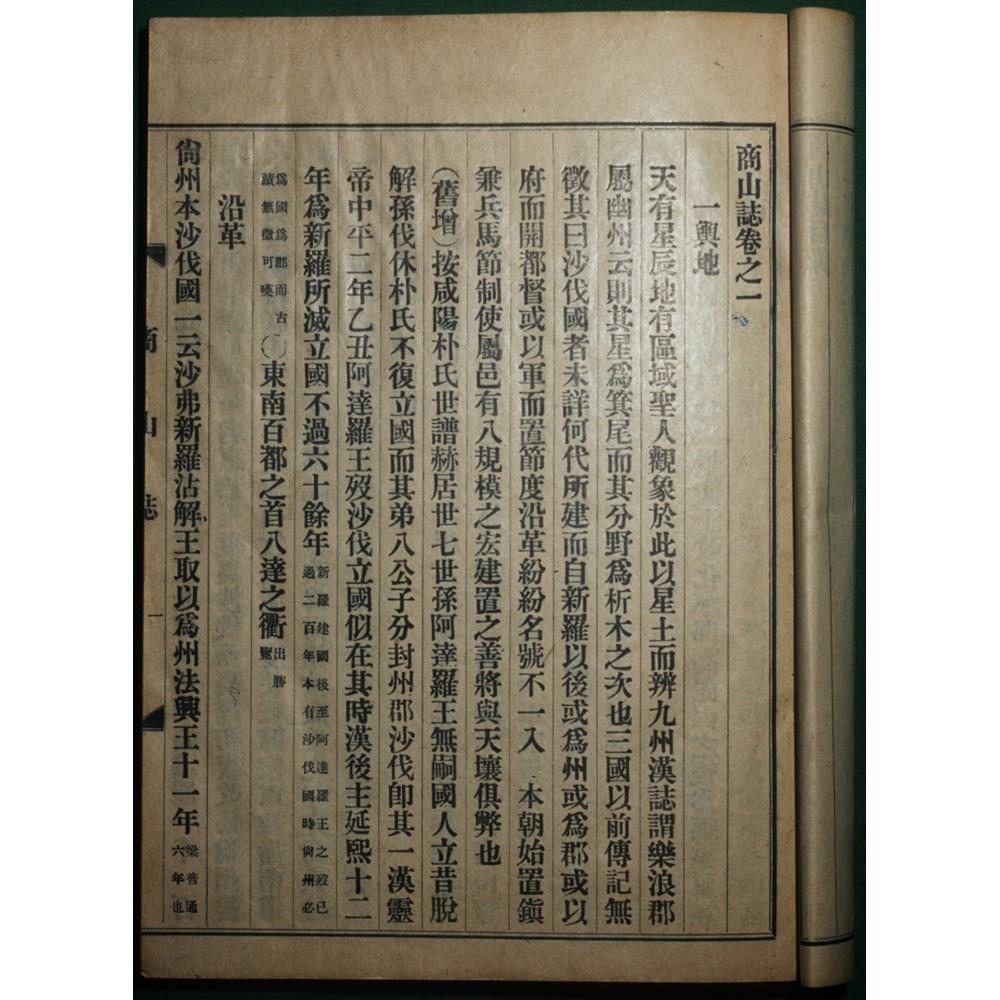 商山誌卷之一
一輿地
天有星辰地有區域聖人觀象於此以星土而辨九州漢誌謂樂浪郡
屬幽州云則其星爲箕尾而其分野爲析木之次也三國以前傳記無
徵其曰沙伐國者未詳何代所建而自新羅以後或爲州或爲郡或以
府而開都督或以軍而置節度沿革紛紛名號不一入 本朝始置鎭
兼兵馬節制使屬邑有八規模之宏建置之善將與天壤俱弊也
(舊增)按咸陽朴氏世譜赫居世七世孫阿達羅王無嗣國人立昔脫
解孫伐休朴氏不復立國而其弟八公子分封州郡沙伐卽其一漢靈
帝中平二年乙丑阿達羅王歿沙伐立國似在其時漢後主延熙十二
年爲新羅所滅立國不過六十餘年新羅建國後至阿達羅王之歿已過二百年本有沙伐國時尙州必
爲國爲郡而古蹟無徵可嘆○東南百都之首八達之衢出勝覽
沿革
尙州本沙伐國一云沙弗新羅沾解王取以爲州法興王十一年梁普通六年也
商山誌
一